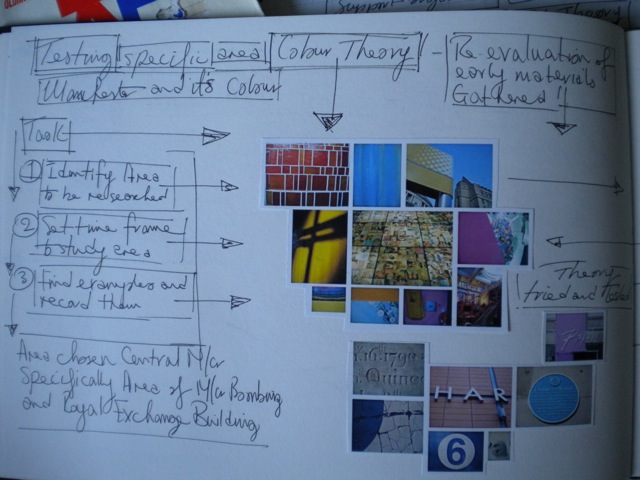 Testing specific area Colour Theory -
Manchester and it's Colour
Re-evaluation of
early materials
Gathered!
Task
① Identify Area
to be researched
② Set time frame
to study area
③ Find examples and
record them
Area chosen Central M/cr
Specifically Area of M/cr Bombing
and Royal Exchange Building
Theory
tried and tested
16.1798
Quince
HAR
6